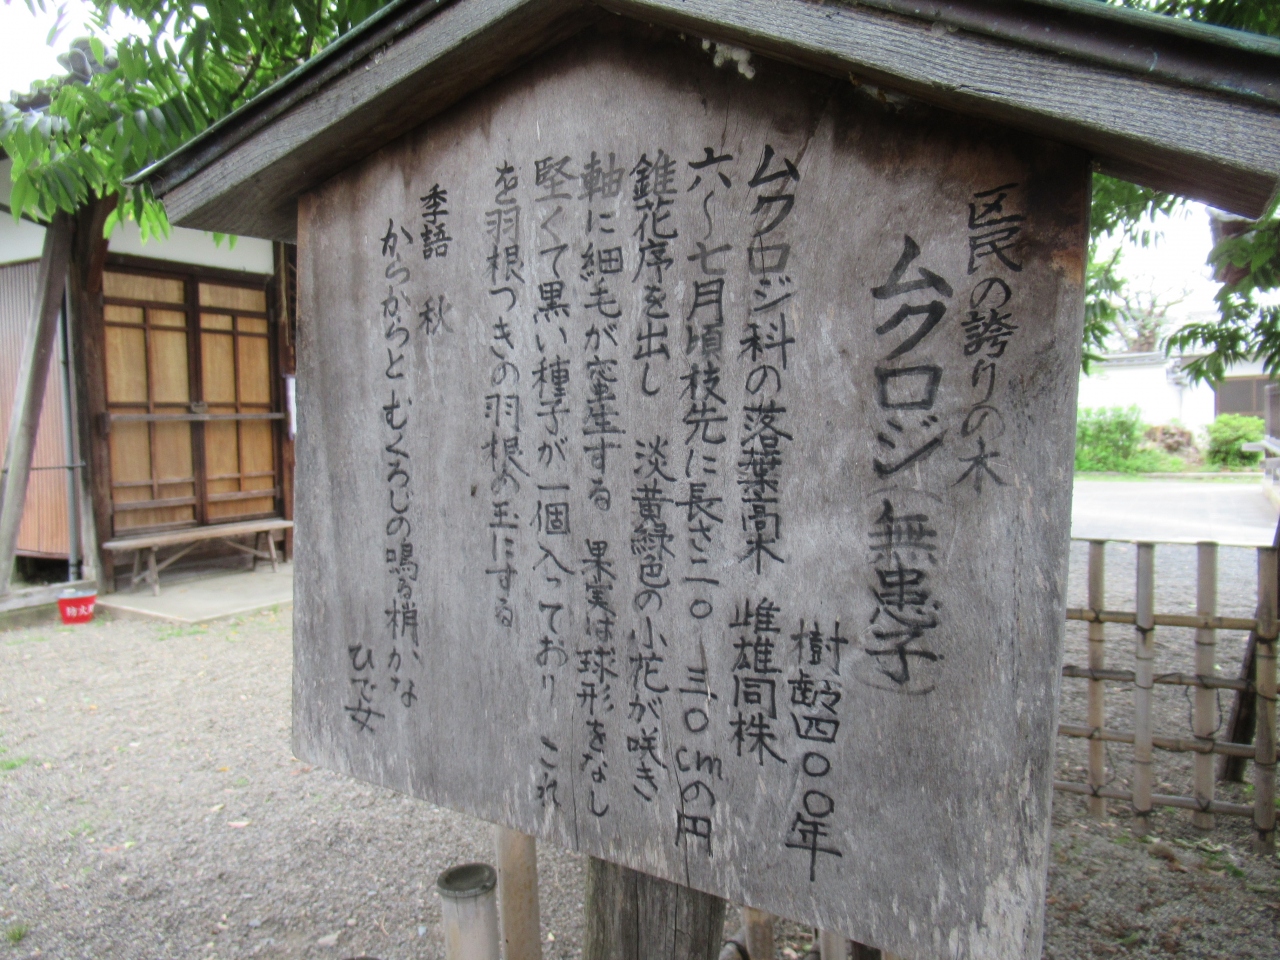 区民の誇りの木
ムクロジ(無患子)
樹齢四〇〇年
ムクロジ科の落葉高木 雌雄同株
六〜七月頃枝先に長さ二〇-三〇cmの円
錐花序を出し 淡黄緑色の小花が咲き
軸に細毛が密生する 果実は球形をなし
堅くて黒い種子が一個入っており これ
を羽根つきの羽根の玉にする
季語 秋
からからと むくろじの鳴る梢かな
ひで女